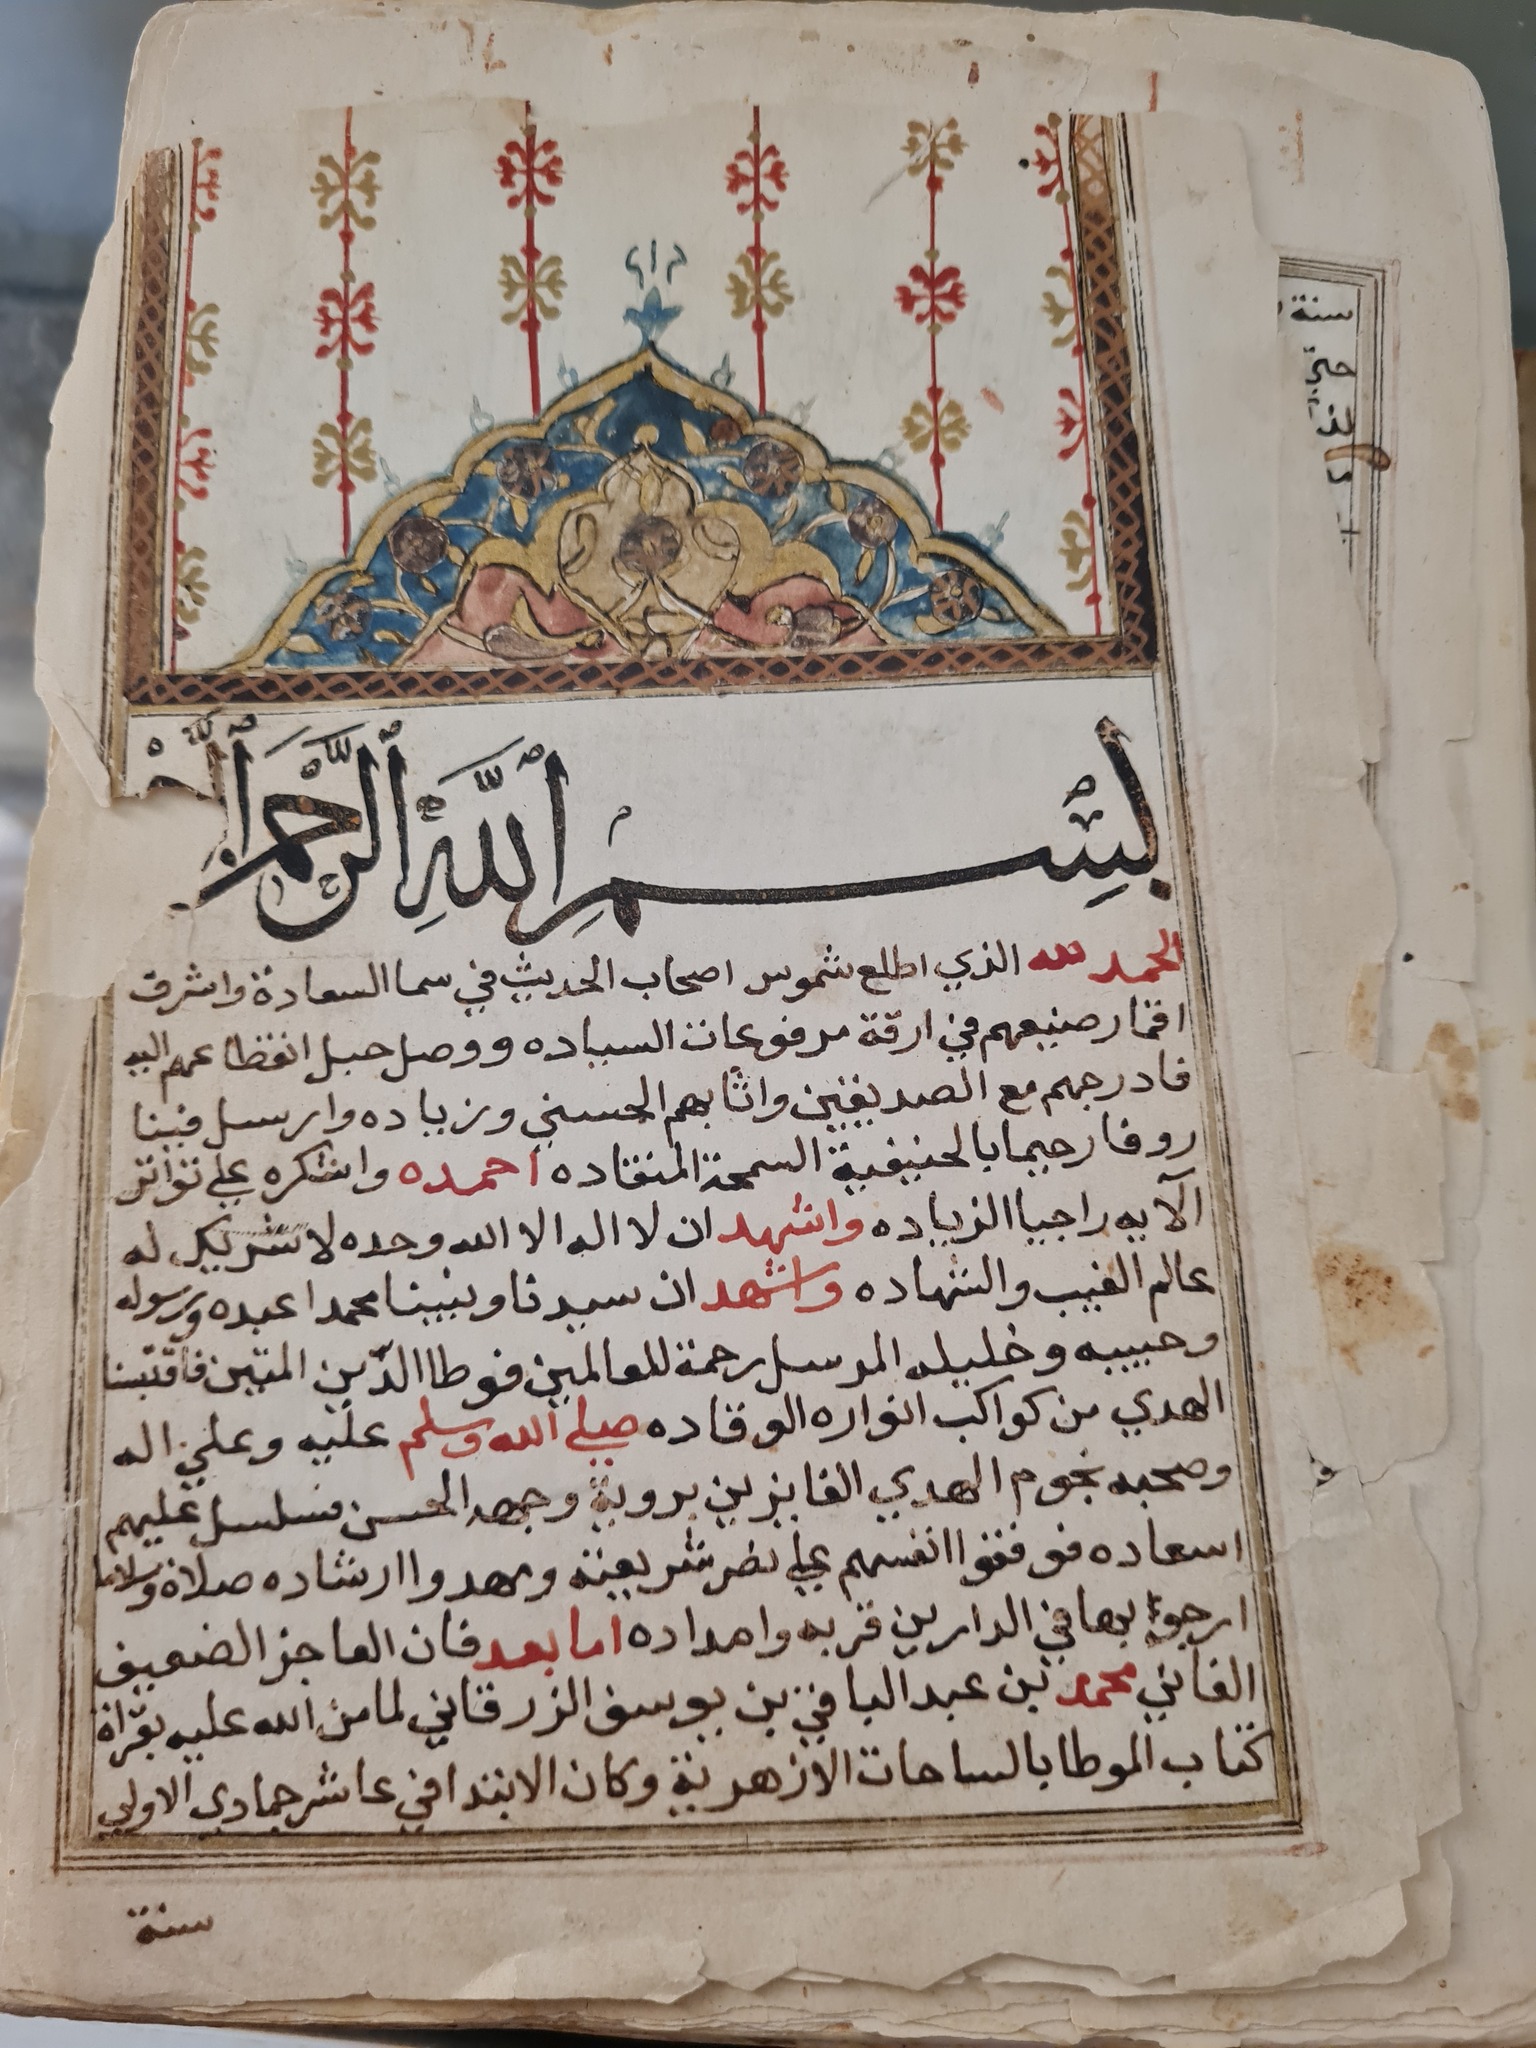 بِسْمِ ٱللَّهِ ٱلرَّحْمَنِ
الحمد لله الذي اطلع شموس اصحاب الحديث في سما السعادة واشرق
اقمار صنيعهم في ارقة مرفوعات السياده ووصل حبل انقطاعهم اليه
فادرجهم مع الصديقين واثابهم الحسني وزياده وارسل فينا
روفا رحيما بالحنيفية السمحة المنقاده احمده واشكره علي تواتر
آلايه راجيا الزياده واشهد ان لا اله الا الله وحده لا شريك له
عالم الغيب والشهاده واشهد ان سيدنا ونبينا محمدا عبده ورسوله
وحبيبه وخليله المرسل رحمة للعالمين فوطا الدين المتين فاقتبسنا
الهدي من كواكب انواره الوقاده صلي الله وسلم عليه وعلي اله
وصحبه نجوم الهدي الفايزين بروية وجهه الحسن مسلسل عليهم
اسعاده فوقفوا انفسهم علي نصر شريعته ومهدوا ارشاده صلاة وسلاما
ارجوا بها في الدارين قربه وامداده اما بعد فان العاجز الضعيف
الفاني محمد بن عبد الباقي بن يوسف الزرقاني لما من الله عليه بقراة
كتاب الموطا بالساحات الازهرية وكان الابتدا في عاشر جمادي الاولي
سنة
سنة